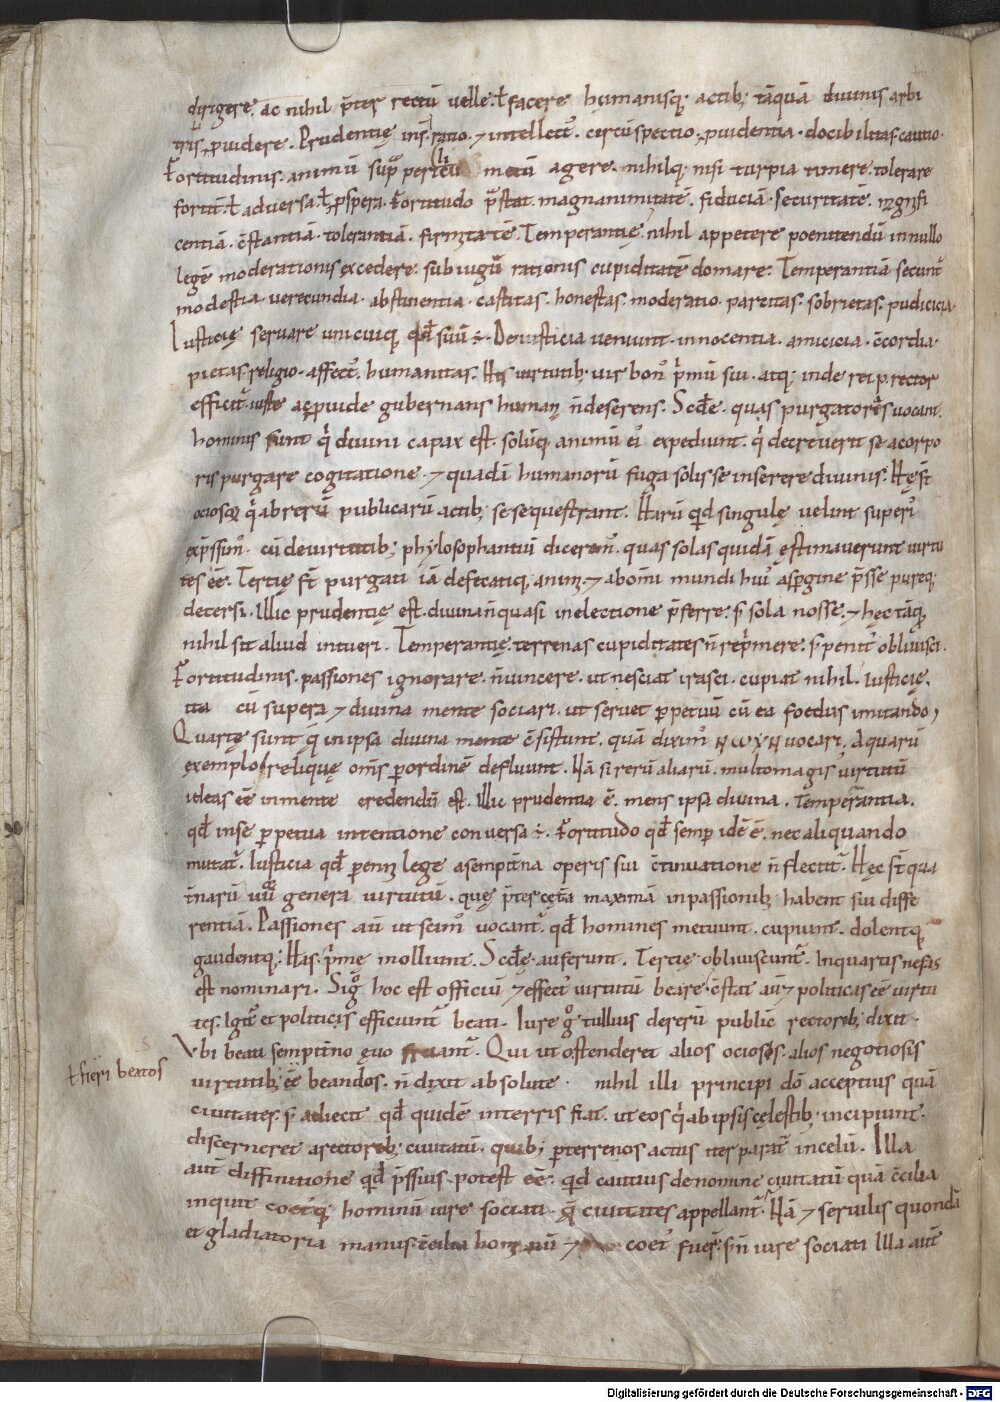 dirigere. ac nihil p̄ter rectū uelle. ł facere humanisq; actib; tāquā diuinis arbi
tris ꝓuidere. Prudentię inē ratio. ⁊ intellect᾿. circūspectio. ꝓuidentia. docibilitas cautio.
Fortitudinis. animū sup̄ periculi metū agere. nihilq; nisi turpia timere. tolerare
fortit̄. ł aduersa. ł ꝓspera. Fortitudo p̄stat magnanimitatē. fiduciā. securitatē. magnifi
centiā. c̄stantiā. tolerantiā. firmitatē. Temperantię. nihil appetere poenitendū in nullo
legē moderationis excedere. sub iugū rationis cupiditatē domare. Temperantiā secunt᾿
modestia. uerecundia. abstinentia. castitas. honestas. moderatio. parcitas. sobrietas. pudicicia.
Iusticię seruare unicuiq; qd̄ suū ÷. De iusticia ueniunt. innocentia. amicicia. c̄cordia.
pietas religio. affect᾿. humanitas. His uirtutib; uir bon᾿ p̄mū sui. atq; inde rei p. rector
efficit᾿. iuste ac ꝓuide gubernans humana n̄ deserens. Scd̄e. quas purgatorias uocant.
hominis sunt q̄ diuini capax est. solūq; animū ei᾿ expediunt. q̄ decreuerit se a corpo
ris purgare cogitatione. ⁊ quadā humanorū fuga solis se inserere diuinis. Hę st̄
ociosoꝝ q̄ a rerū publicarū actib; se sequestrant. Harū qid singulę uelint superi᾿
exp̄ssim᾿. cū de uirtutib; phylosophantiū dicerem᾿. quas solas quidā ęstimauerunt uirtu
tes eē. Tertię st̄ purgati iā defecatiq; animi. ⁊ ab omi mundi hui᾿ aspgine p̄sse pureq;
detersi. Illic prudentię est. diuina n̄ quasi in electione p̄ferre. s; sola nosse. ⁊ hęc tāq̄
nihil sit aliud intueri. Temperantię. terrenas cupiditates n̄ rep̄mere. s; penit᾿ obliuisci.
Fortitudinis. passiones ignorare. n̄ uincere. ut nesciat irasci. cupiat nihil. Iusticię.
ita cū supera ⁊ diuina mente sociari. ut seruet ꝑpetuū cū ea foedus imitando,
Quartę sunt q̄ in ipsa diuina mente c̄sistunt. quā dixim᾿ ΝωΥΝ uocari. A quarū
exemplo reliquę om̄s ꝑ ordinē defluunt. Nā si rerū aliarū. multo magis uirtutū
ideas eē in mente credendū est. Illic prudentia ē. mens ipsa diuina. Temperantia.
qd̄ in se ꝑpetua intentione conuersa ÷. Fortitudo qd̄ semp idē ē. nec aliquando
mutat᾿. Iusticia qd̄ perenni lege a sempit̄na operis sui c̄tinuatione n̄ flectit᾿. Hęc st̄ qua
t̄narū genera uirtutū. quę p̄ter cęt̄a maximā in passionib; habent sui diffe
rentiā. Passiones aū ut scim᾿ uocant᾿. qd̄ homines metuunt. cupiunt. dolentq;
gaudentq;. Has p̄mę molliunt. Scd̄ę. auferunt. Tertię obliuiscunt᾿. In quartis nefas
est nominari. Si g° hoc est officiū ⁊ effect᾿ uirtutū beare. c̄stat aū ⁊ politicas eē uirtu
tes. Igit᾿ et politicis efficiunt᾿ beati. Iure g° tullius de rerū public̄ rectorib; dixit.
Vbi beati sempit̄no ęuo fruant᾿. Qui ut ostenderet alios ociosis. alios negotiosis
ł fieri beatos
uirtutib; eē beandos. n̄ dixit absolute. nihil illi principi dō acceptius quā
ciuitates. s; adiecit qd̄ quidē in terris fiat. ut eos q̄ ab ipsis cęlestib; incipiunt.
discerneret a rectorib; ciuitatū. quib; ꝑ terrenos actus iter parat᾿ in celū. Illa
aut̄ diffinitione qd̄ p̄ssius potest eē. qid cautius de nomine ciuitatū quā c̄cilia
inquit coetꝰq; hominū iure sociati. q̄ ciuitates appellant᾿. Nā ⁊ seruilis quondā
et gladiatoria manus. c̄cilia hominū ⁊ coet᾿ fuer̄. s; n̄ iure sociati Illa aut̄
Digitalisierung gefördert durch die Deutsche Forschungsgemeinschaft - DFG